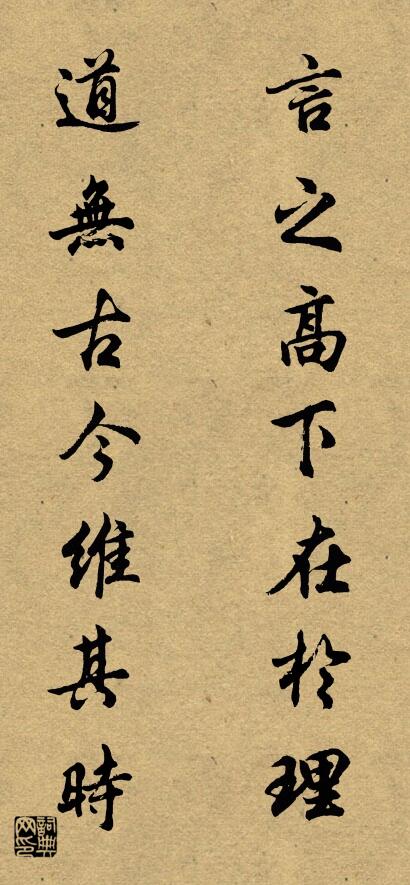 言之高下在於理
道無古今維其時
詞典网印